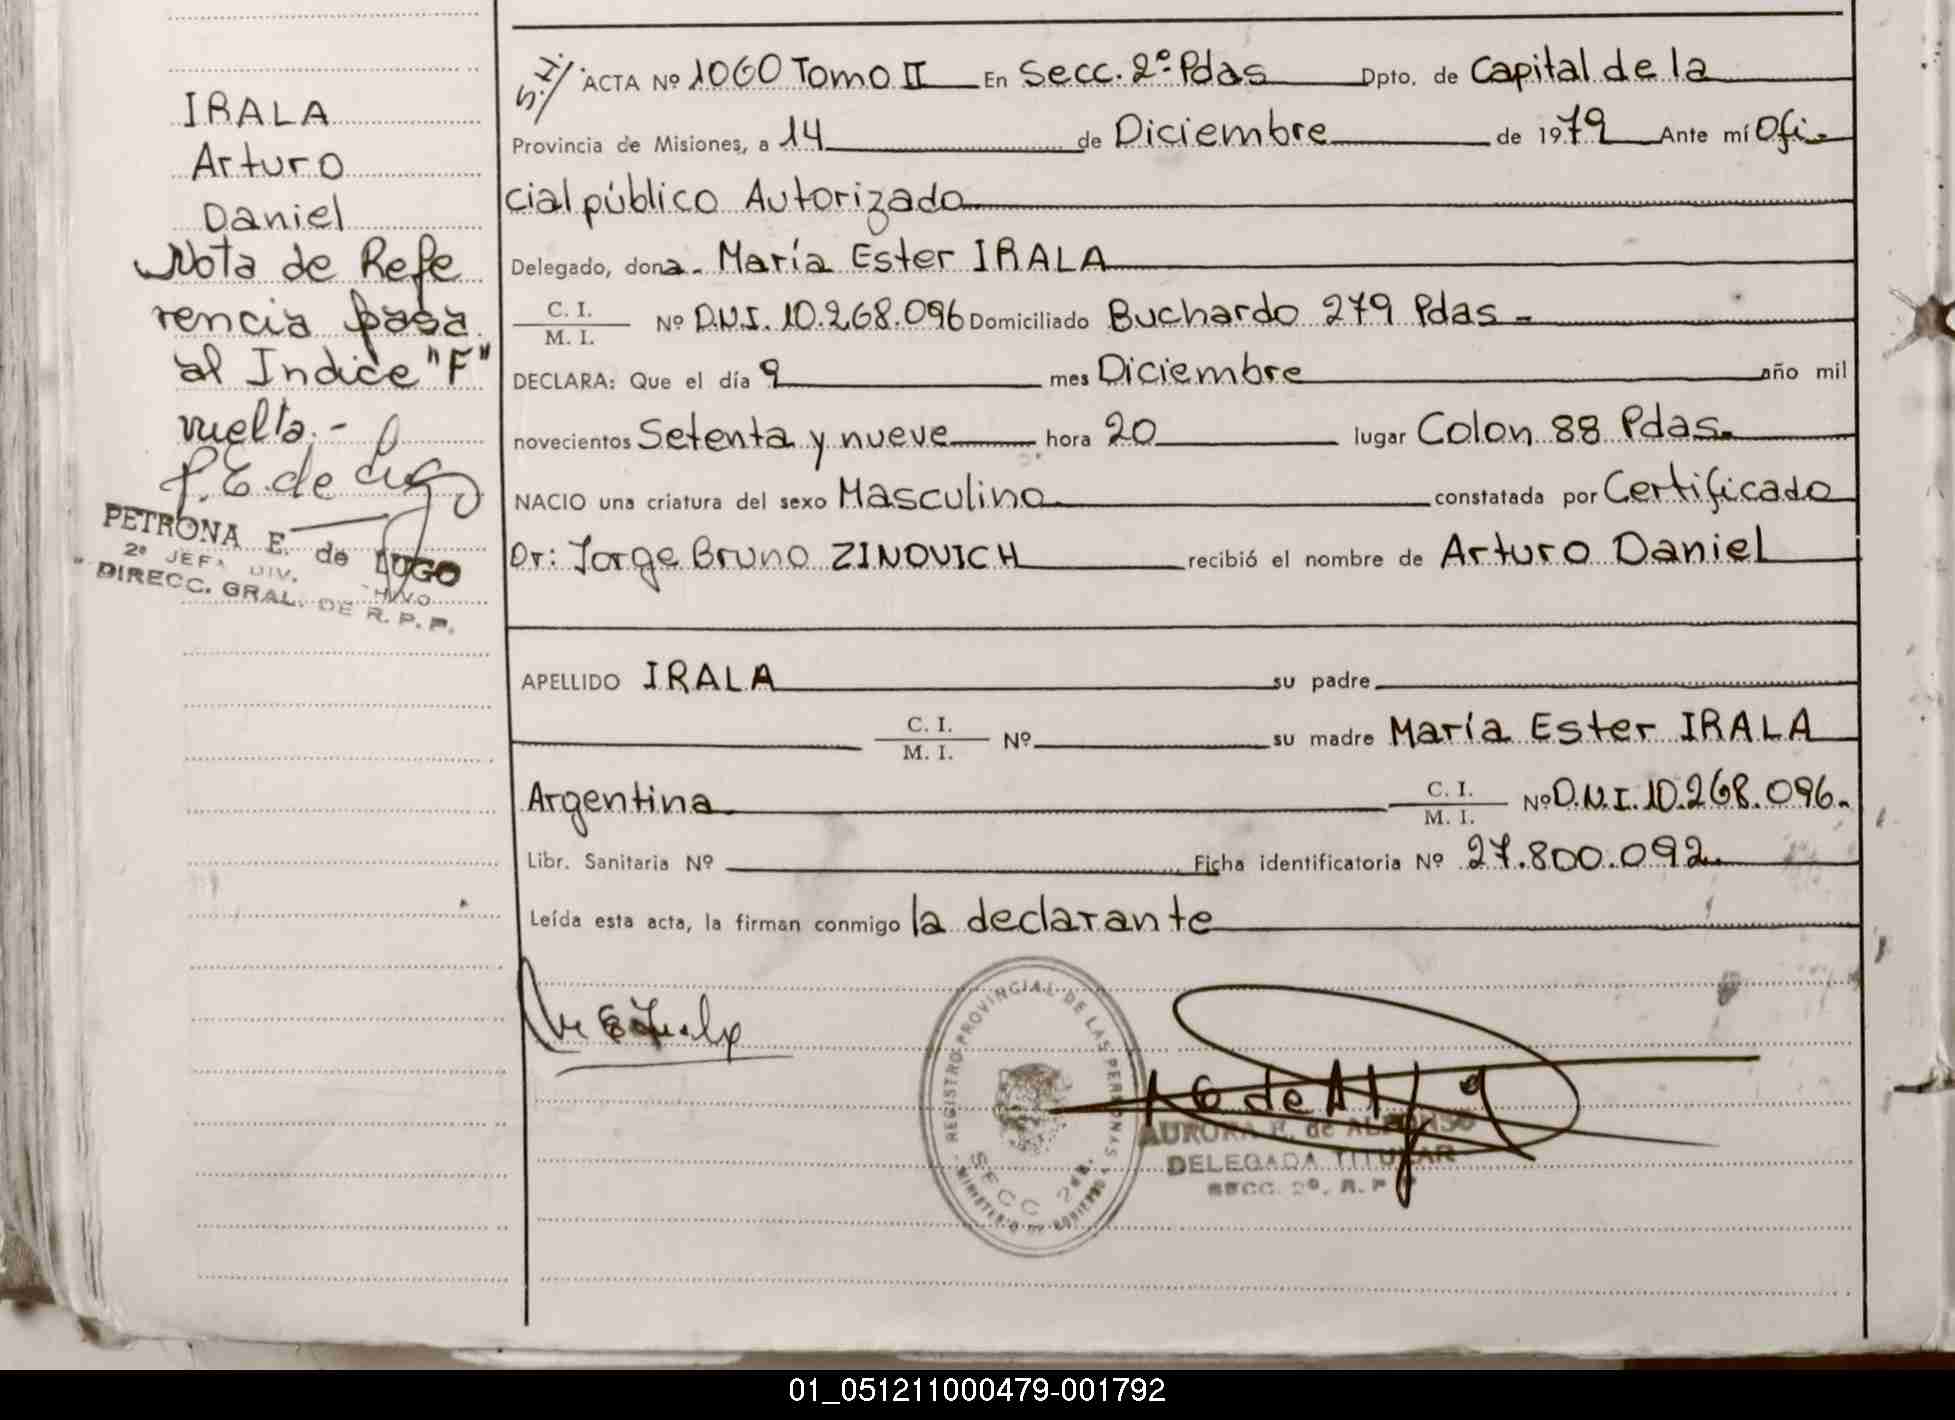 IRALA
Arturo
Daniel
Nota de Refe
rencia pasa
al Indice "F"
vuelta.-
P. E. de Lugo
PETRONA E. de LUGO
2º JEFA DIV. ARCHIVO
DIRECC. GRAL. DE R. P. P.
S.I. ACTA Nº 1060 Tomo II En Secc. 2º Pdas Dpto. de Capital de la
Provincia de Misiones, a 14 de Diciembre de 1979 Ante mí Ofi-
cial público Autorizado
Delegado, dona. María Ester IRALA
C. I.
M. I.
Nº D.N.I. 10.268.096 Domiciliado Buchardo 279 Pdas -
DECLARA: Que el día 9 mes Diciembre año mil
novecientos Setenta y nueve hora 20 lugar Colon 88 Pdas.
NACIO una criatura del sexo Masculino constatada por Certificado
Dr: Jorge Bruno ZINOVICH recibió el nombre de Arturo Daniel
APELLIDO IRALA su padre
C. I.
M. I.
Nº su madre María Ester IRALA
Argentina
C. I.
M. I.
Nº D.N.I. 10.268.096.
Libr. Sanitaria Nº Ficha identificatoria Nº 27.800.092.
Leída esta acta, la firman conmigo la declarante
REGISTRO PROVINCIAL DE LAS PERSONAS
SECC 2da.
MINISTERIO DE GOBIERNO
AURORA E. de ALFONSO
DELEGADA TITULAR
SECC. 2º. R. P. P.
01_051211000479-001792